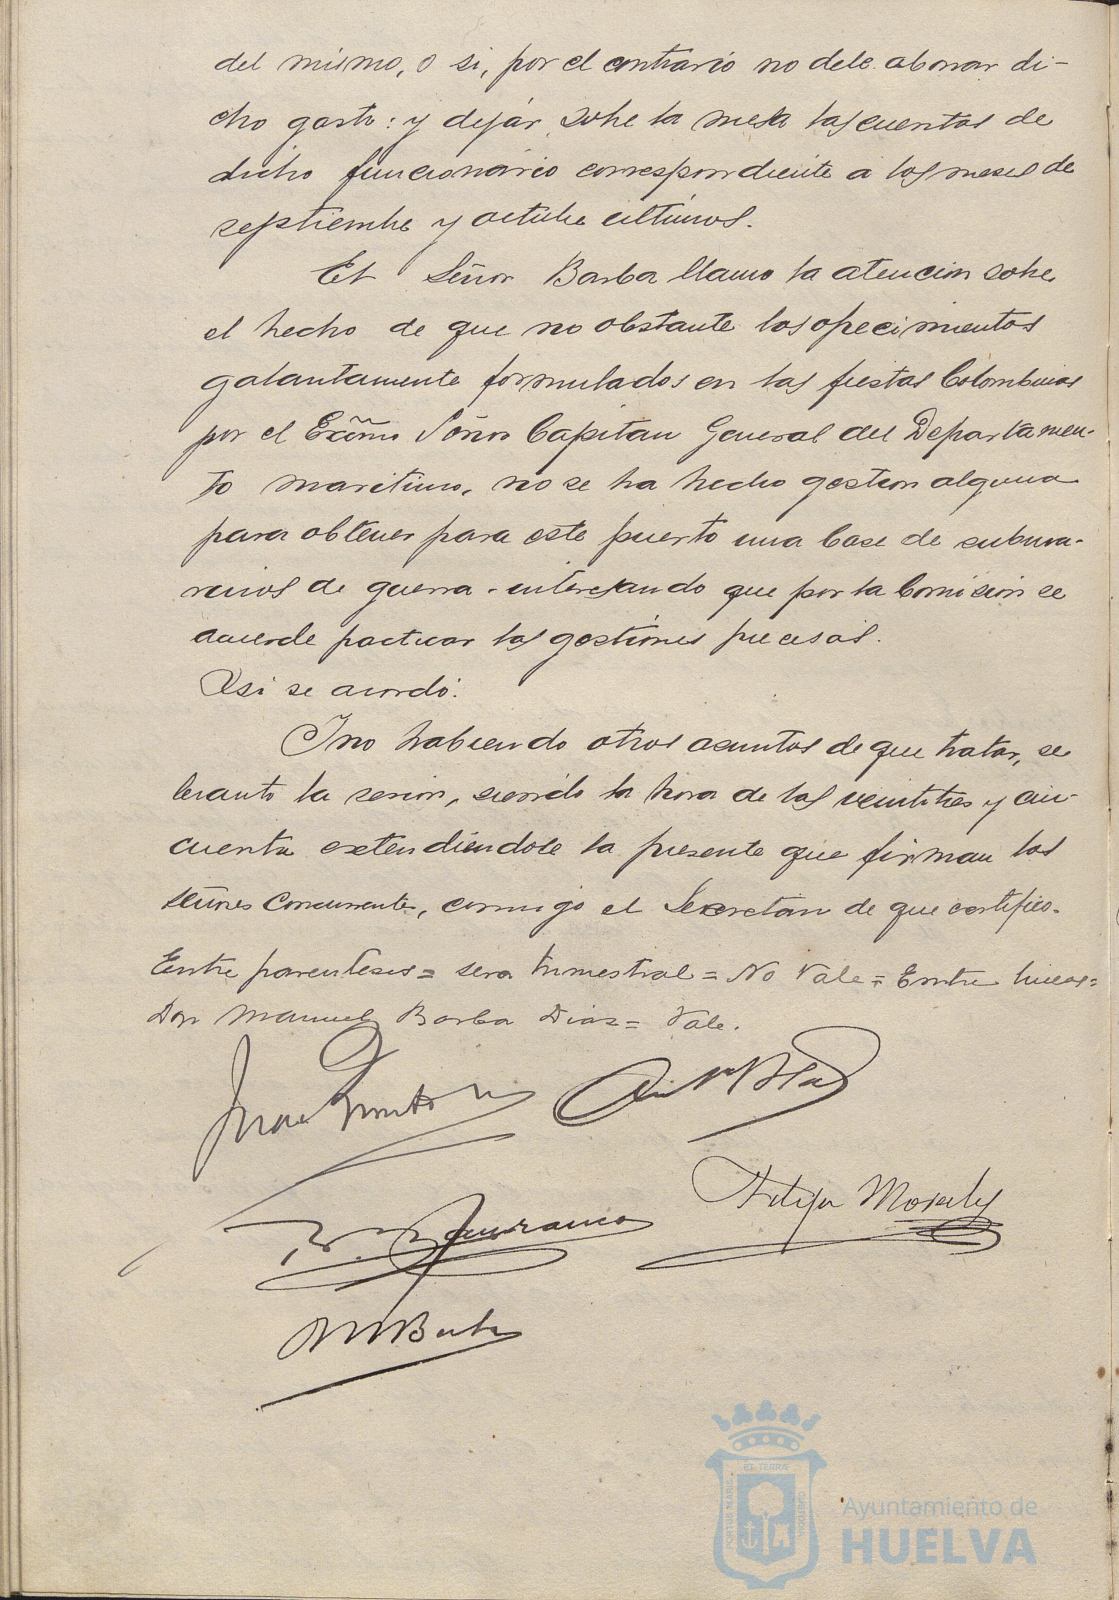 del mismo, o si, por el contrario no debe abonar di-
cho gasto: y dejár sobre la mesa las cuentas de
dicho funcionário correspondiente a los meses de
septiembre y octubre ultimos.
El Señor Barba llamo la atencion sobre
el hecho de que no obstante los ofrecimientos
galantamente formulados en las fiestas Colombinas
por el Excmo Señor Capitan General del Departamen-
to maritimo, no se ha hecho gestion alguna
para obtener para este puerto una base de subma-
rinos de guerra. interesando que por la Comision se
acuerde practicar las gestiones precisas.
Asi se acordó.
Y no habiendo otros asuntos de que tratar, se
levanto la sesion, siendo la hora de las veintitres y cin-
cuenta extendiéndose la presente que firman los
señores concurrentes, conmigo el Secretario de que certifico.
Entre parentesis = sera trimestral = No Vale = Entre lineas =
Don Manuel Barba Diaz = Vale.
Felipe Morales
M Barba
ET TERRÆ
PORTUS MARIS
CUSTODIA
Ayuntamiento de
HUELVA